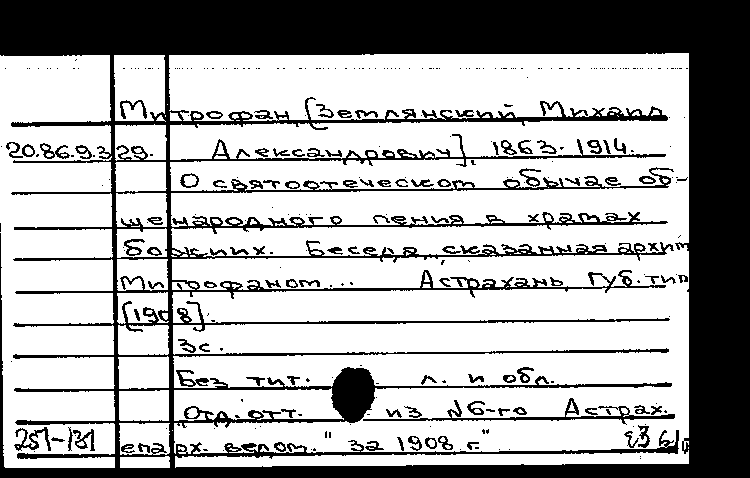 Митрофан, [Землянский, Михаил
20.86.9.329. Александрович], 1863-1914.
О святоотеческом обычае об-
щенародного пения в храмах
божиих. Беседа, сказанная архим.
Митрофаном... Астрахань, Губ. тип,
[1908].
3с.
Без тит. л. и обл.
Отд. отт. из №6-го Астрах.
епарх. ведом." за 1908 г."
251-131